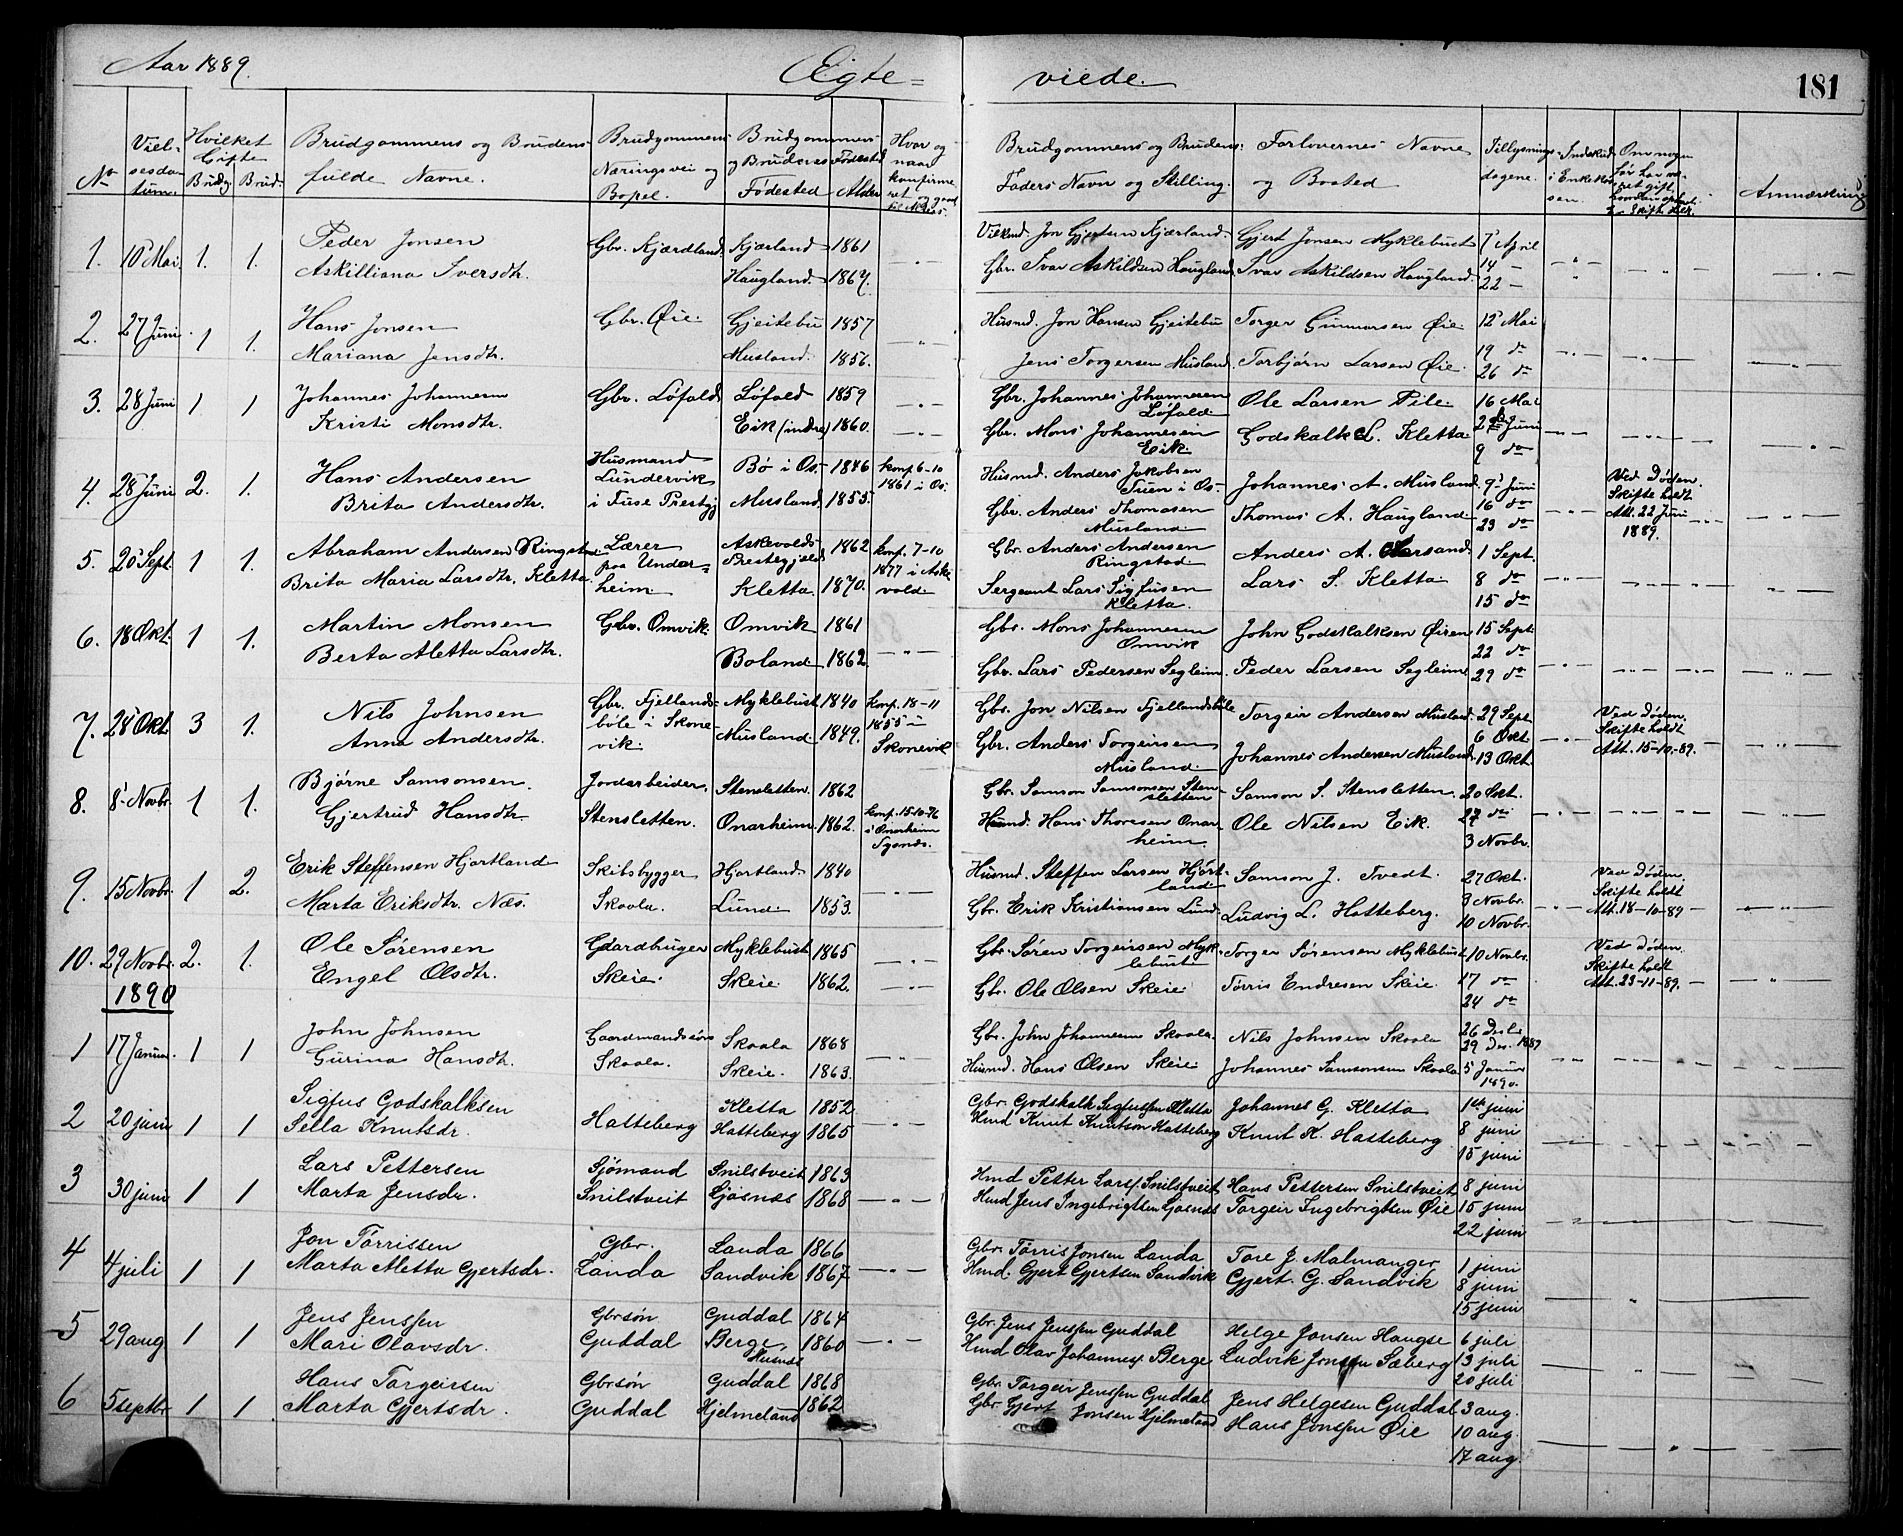 Aar 1889.
Ægte=
viede.
181
No
Viel-
sesda-
tum.
Hvilket
Gifte
Brudg. Brud.
Brudgommens og Brudens
fulde Navne.
Brudgommens
Næringsvei og
Bopel.
Brudgommens
og Brudens
Fødested
Alder
Hvor og
naar
konfirme
ret
Brudgommens og Brudens
Faders Navn og Stilling.
Forlovernes Navne
og Bosted
Tillysnings-
dagene.
Indskud
i Enkekas
sen.
Om nogen
før har væ-
ret gift,
Anmærkning
1. 10 Mai 1. 1. Peder Jonsen Gbr. Kjærdland Kjærland 1861 Jon Gjertsen Kjærland. Gjert Jonsen Myklebust 7 April
Askilliana Iversdtr. Haugland 1867. Gbr. Ivar Askildsen Haugland Ivar Askildsen Haugland 14 –
22 –
2. 27 Juni 1 1. Hans Jonsen Gbr. Øie. Gjeitebu 1857 Husmd. Jon Hansen Gjeitebu Torger Gunnarsen Øie 12 Mai
Mariana Jensdtr. Musland. 1856. Jens Torgersen Musland. Torbjørn Larsen Øie 19 do
26 do
3. 28 Juni 1 1 Johannes Johannesen Gbr. Løfald Løfald 1859 Gbr. Johannes Johannesen
Løfald Ole Larsen Pile 16 Mai
Kristi Monsdtr. Eik (indre) 1860. Gbr. Mons Johannesen
Eik. Godskalk L. Kletta 2 Juni
9 do
4. 28 Juni 2. 1. Hans Andersen Husmand
Lundervik
i Fuse Prestgj Bø i Os 1846 konf. 6-10
1861 i Os. Husmd. Anders Jakobsen
Tuen i Os Johannes A. Musland 9 Juni Ved Døden.
Skifte holdt
Att. 22 Juni
1889.
Brita Andersdtr. Musland 1855. Gbr. Anders Thomasen
Musland Thomas A. Haugland 16 do
23 do
5. 20 Sept. 1 1. Abraham Andersen Ringstad Lærer
paa Undar=
heim Askevolds
Prestegjeld 1862 konf. 7-10
1877 i Aske
vold Gbr. Anders Andersen
Ringstad Anders A. 1 Sept.
Brita Maria Larsdtr. Kletta Kletta 1870. Sergeant Lars Sigfusen
Kletta. Lars S. Kletta 8 do
15 do
6. 18 Okt. 1 1. Martin Monsen Gbr. Omvik. Omvik 1861 Gbr. Mons Johannesen
Omvik John Godskalksen Øiren 15 Sept.
Berta Aletta Larsdtr. Boland 1862. Gbr. Lars Pedersen Segleim. Peder Larsen Segleim 22 do
29 do
7. 28 Okt. 3 1. Nils Johnsen Gbr. Fjellands-
bile i Skone
vik. Myklebust 1840 konf. 18-11
1855 i
Skonevik Gbr. Jon Nilsen Fjellandsbile Torgeir Andersen Musland. 29 Sept Ved Døden.
Skifte holdt
Att. 15-10-89.
Anna Andersdtr. Musland 1849. Gbr. Anders Torgeirsen
Musland. Johannes Andersen Musland 6 Okt.
13 Okt.
8. 8 Novbr. 1 1. Bjørne Samsonsen. Jordarbeider. Stensletten. 1862 Gbr. Samson Samsonsen Sten-
sletten Samson S. Stensletten. 20 Okt.
Gjertrud Hansdtr. Stensletten. Onarheim. 1862. konf. 15-10-76
i Onarheim
Tysnæs. Husmd. Hans Thoresen Onar-
heim Ole Nilsen Eik. 27 do
3 Novbr.
9. 15 Novbr. 1 2. Erik Steffensen Hjartland Skibsbygger Hjortland 1840 Husmd. Steffen Larsen Hjørt-
land Samson J. Tvedt. 27 Okt. Ved Døden.
Skifte holdt
Att. 18-10-89
Marta Eriksdtr. Næs. Skaala. Lund 1853. Gbr. Erik Kristiansen Lund. Ludvig L. Hatteberg. 3 Novbr.
10 Novbr.
10. 29 Novbr. 2. 1. Ole Sørensen Gaardbruger Myklebust 1865 Gbr. Søren Torgeirsen Myk
lebust Torger Sørensen Myklebust 10 Novbr. Ved Døden.
Skifte holdt
Att. 23-11-89.
Engel Olsdtr. Skeie. Skeie 1862. Gbr. Ole Olsen Skeie Tørris Endresen Skeie 17 do
24 do
1890
1 17 Januar. 1 1 John Johnsen Gaardmandssøn Skaala 1868 Gbr. John Johannesen Skaala. Nils Johnsen Skaala 26 Desb.
29 Des. 1889
Gurina Hansdtr. Skaala. Skeie. 1863. Husmd. Hans Olsen Skeie Johannes Samsonsen Skaala 5 Januar
1890.
2 20 juni 1 1 Sigfus Godskalksen Hatteberg Kletta 1852 Gbr. Godskalk Sigfussen Kletta Johannes G. Kletta 1ste juni
Sella Knutsdr. Hatteberg 1865 Hmd Knut Knutson Hatteberg Knut K. Hatteberg 8 juni
15 juni
3 30 juni 1 1 Lars Pettersen Sjømand Snilstveit 1863 Hmd Petter Larss. Snilstveit Hans Pettersen Snilstveit 8 juni
Marta Jensdr. Snilstveit Gjøsnæs 1868 Hmd Jens Ingebrigtsen Gøsnæs Torgeir Ingebrigtsen Øie 15 juni
22 juni
4 4 juli 1 1 Jon Tørrissen Gbr. Landa 1866 Gbr. Tørris Jonsen Landa Tore J. Malmanger 1 juni
Marta Aletta Gjertsdr. Landa Sandvik 1867 Hmd. Gjert Gjertsen Sandvik Gjert. G. Sandvik 8 juni
15 juni
5 29 aug 1 1 Jens Jenssen Gbrsøn Guddal 1864 Gbr. Jens Jenssen Guddal Helge Jonsen Haugse 6 juli
Mari Olavsdr. Guddal Berge,
Husnæs 1860 Hmd Olav Johanness. Berge Ludvik Jonssen Sæberg 13 juli
20 juli
6 5 septbr 1 1 Hans Torgeirsen Gbrsøn Guddal 1868 Gbr. Torgeir Jenssen Guddal Jens Helgesen Guddal 3 aug.
Marta Gjertsdr. Guddal Hjelmeland 1862 Gbr Gjert Jonsen Hjelmeland Hans Jonssen Øie 10 aug.
17 aug.